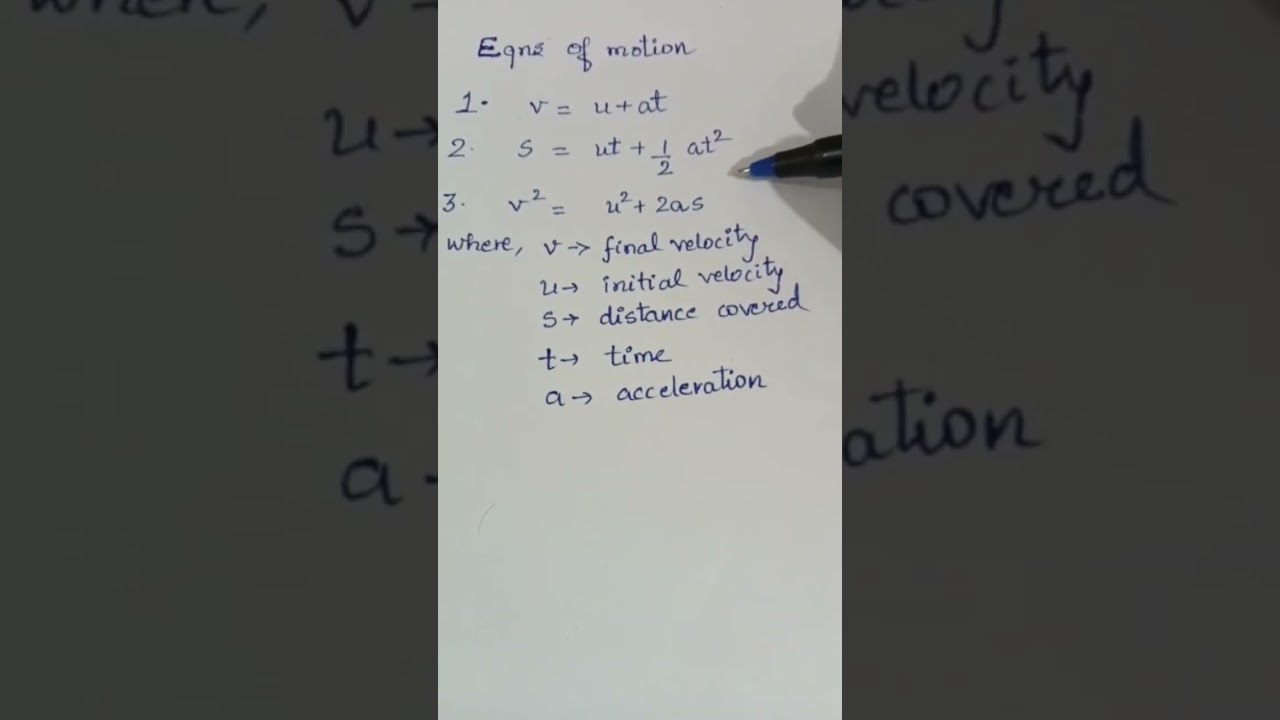 Eqns of motion
1. v = u + at
2. s = ut + 1/2 at²
3. v² = u² + 2as
where, v → final velocity
u → initial velocity
s → distance covered
t → time
a → acceleration